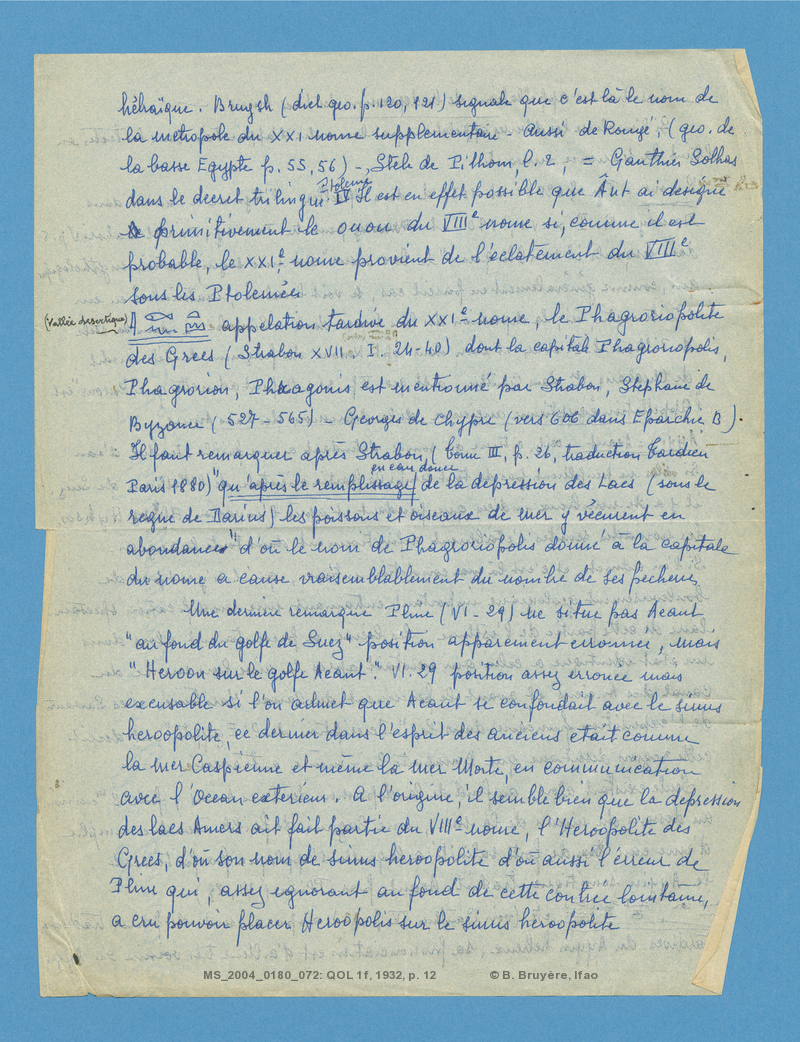 hébraïque. Brugsh (dict geo. p. 120, 121) signale que c'est là le nom de
la metropole du XXI nome supplementaire - aussi de Rougé, (geo. de
la basse Egypte p. 55, 56) -, Stele de Pithom, l. 2, = Gauthier Solhas
Ptolemée
dans le decret trilingue IV Il est en effet possible que Ânt ai designé
primitivement le ouou du VIIIe nome si, comme il est
probable, le XXIe nome provient de l'éclatement du VIIIe
sous les Ptolemées
(Vallée desertique)
appelation tardive du XXIe nome, le Phagroriopolite
des Grecs (Strabon XVII. I. 24-40) dont la capitale Phagroriopolis,
Phagrorion, Phragonis est mentionné par Strabon, Stephane de
Byzance (527 - 565) - Georges de Chypre (vers 606 dans Eparchie B).
Il faut remarquer après Strabon, (tome III, p. 26, traduction Tardieu
en eau douce
Paris 1880) "qu'après le remplissage de la depression des Lacs (sous le
regne de Darius) les poissons et oiseaux de mer y vécurent en
abondances" d'où le nom de Phagroriopolis donné a la capitale
du nome a cause vraisemblablement du nombre de ses pecheurs
Une derniere remarque Pline (VI - 29) ne situe pas Aeant
"au fond du golfe de Suez" position apparement erronnee, mais
"Heroon sur le golfe Aeant." VI. 29 position assez erronée mais
excusable si l'on admet que Aeant se confondait avec le sinus
heroopolite, ce dernier dans l'esprit des anciens etait comme
la mer Caspienne et même la mer Morte, en communication
avec l'Ocean exterieur. A l'origine, il semble bien que la depression
des lacs Amers ait fait partie du VIIIe nome, l'Heroopolite des
Grecs, d'où son nom de sinus heroopolite d'où aussi l'erreur de
Pline qui, assez ignorant au fond de cette contrée lointaine,
a cru pouvoir placer Heroopolis sur le sinus heroopolite
MS_2004_0180_072: QOL 1f, 1932, p. 12 © B. Bruyère, Ifao